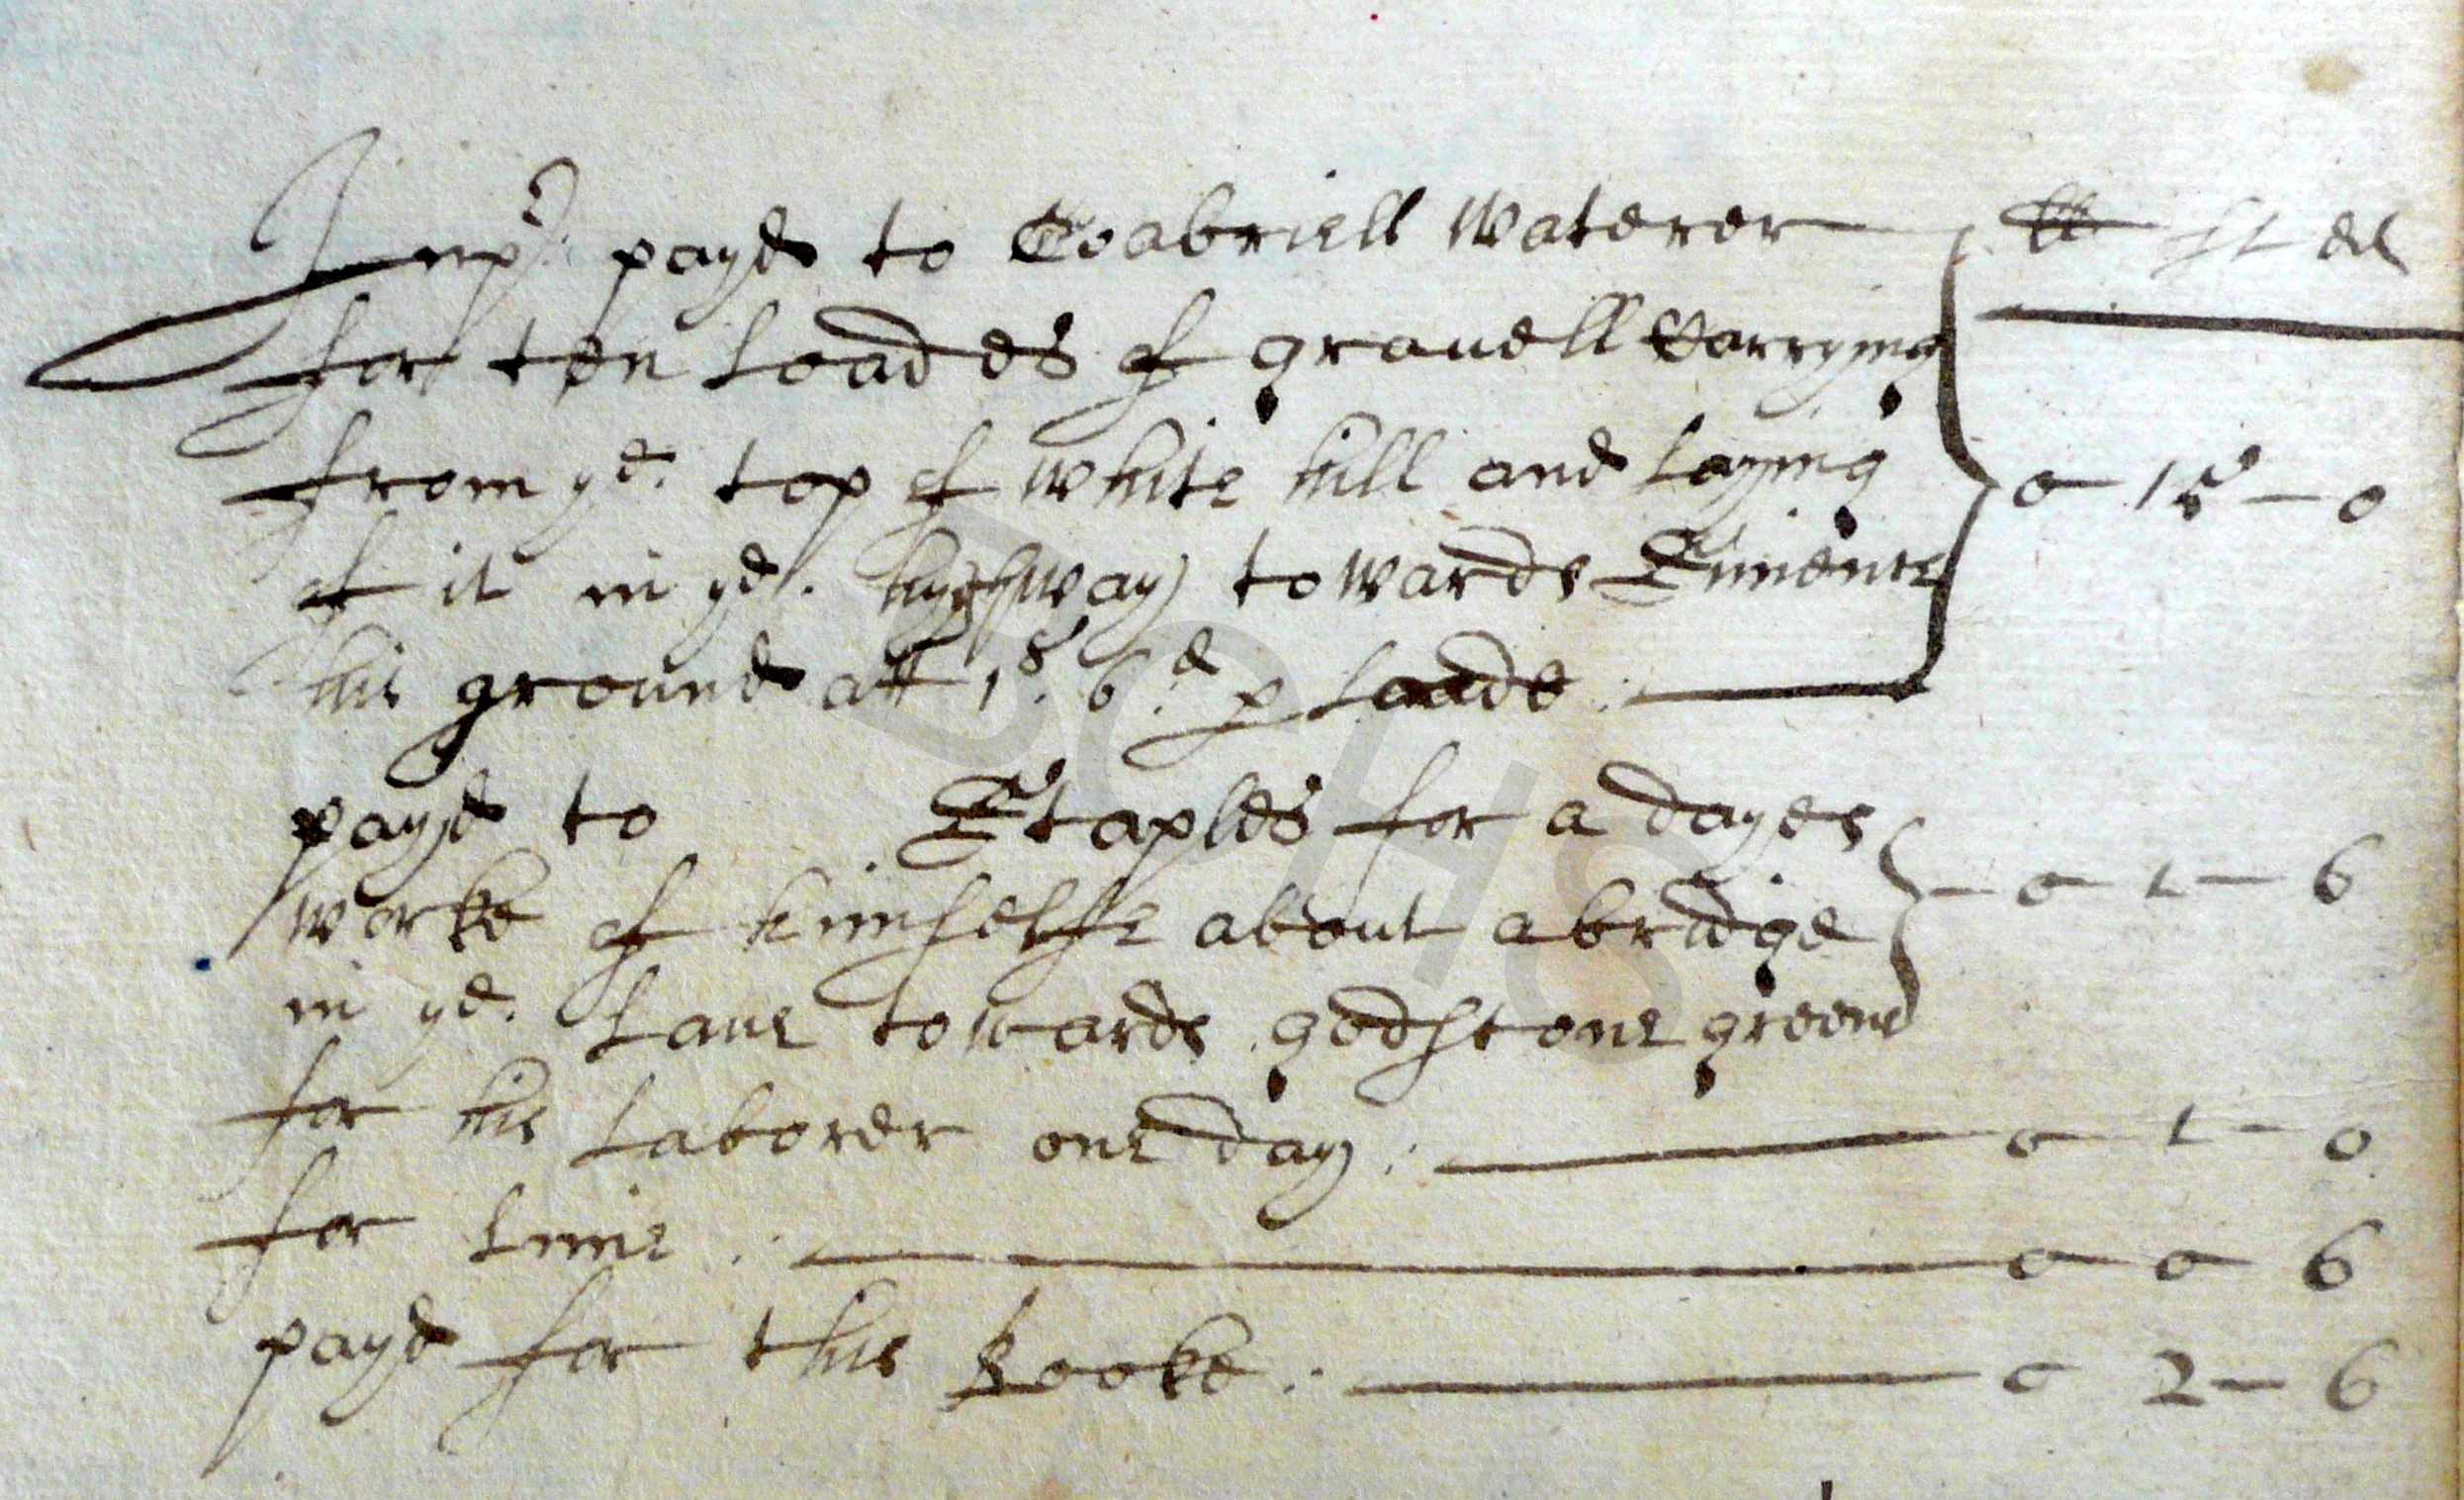 Imp.r payd to Gabriell Waterer li st di
for ten Loades of gravell Carrying
from ye. top of white hill and Laying 0 – 15 – 0
of it in ye. highway towards
his ground att 1s. 6d. p Loade :
payd to Staples for a dayes
worke of himselfe about a bridge – 0 – 1 – 6
in ye. Lane towards godstone greene
for his Laborer one day : 0 – 1 – 0
for Lime : 0 – 0 6
payd for this Booke : 0 2 – 6
BCHS